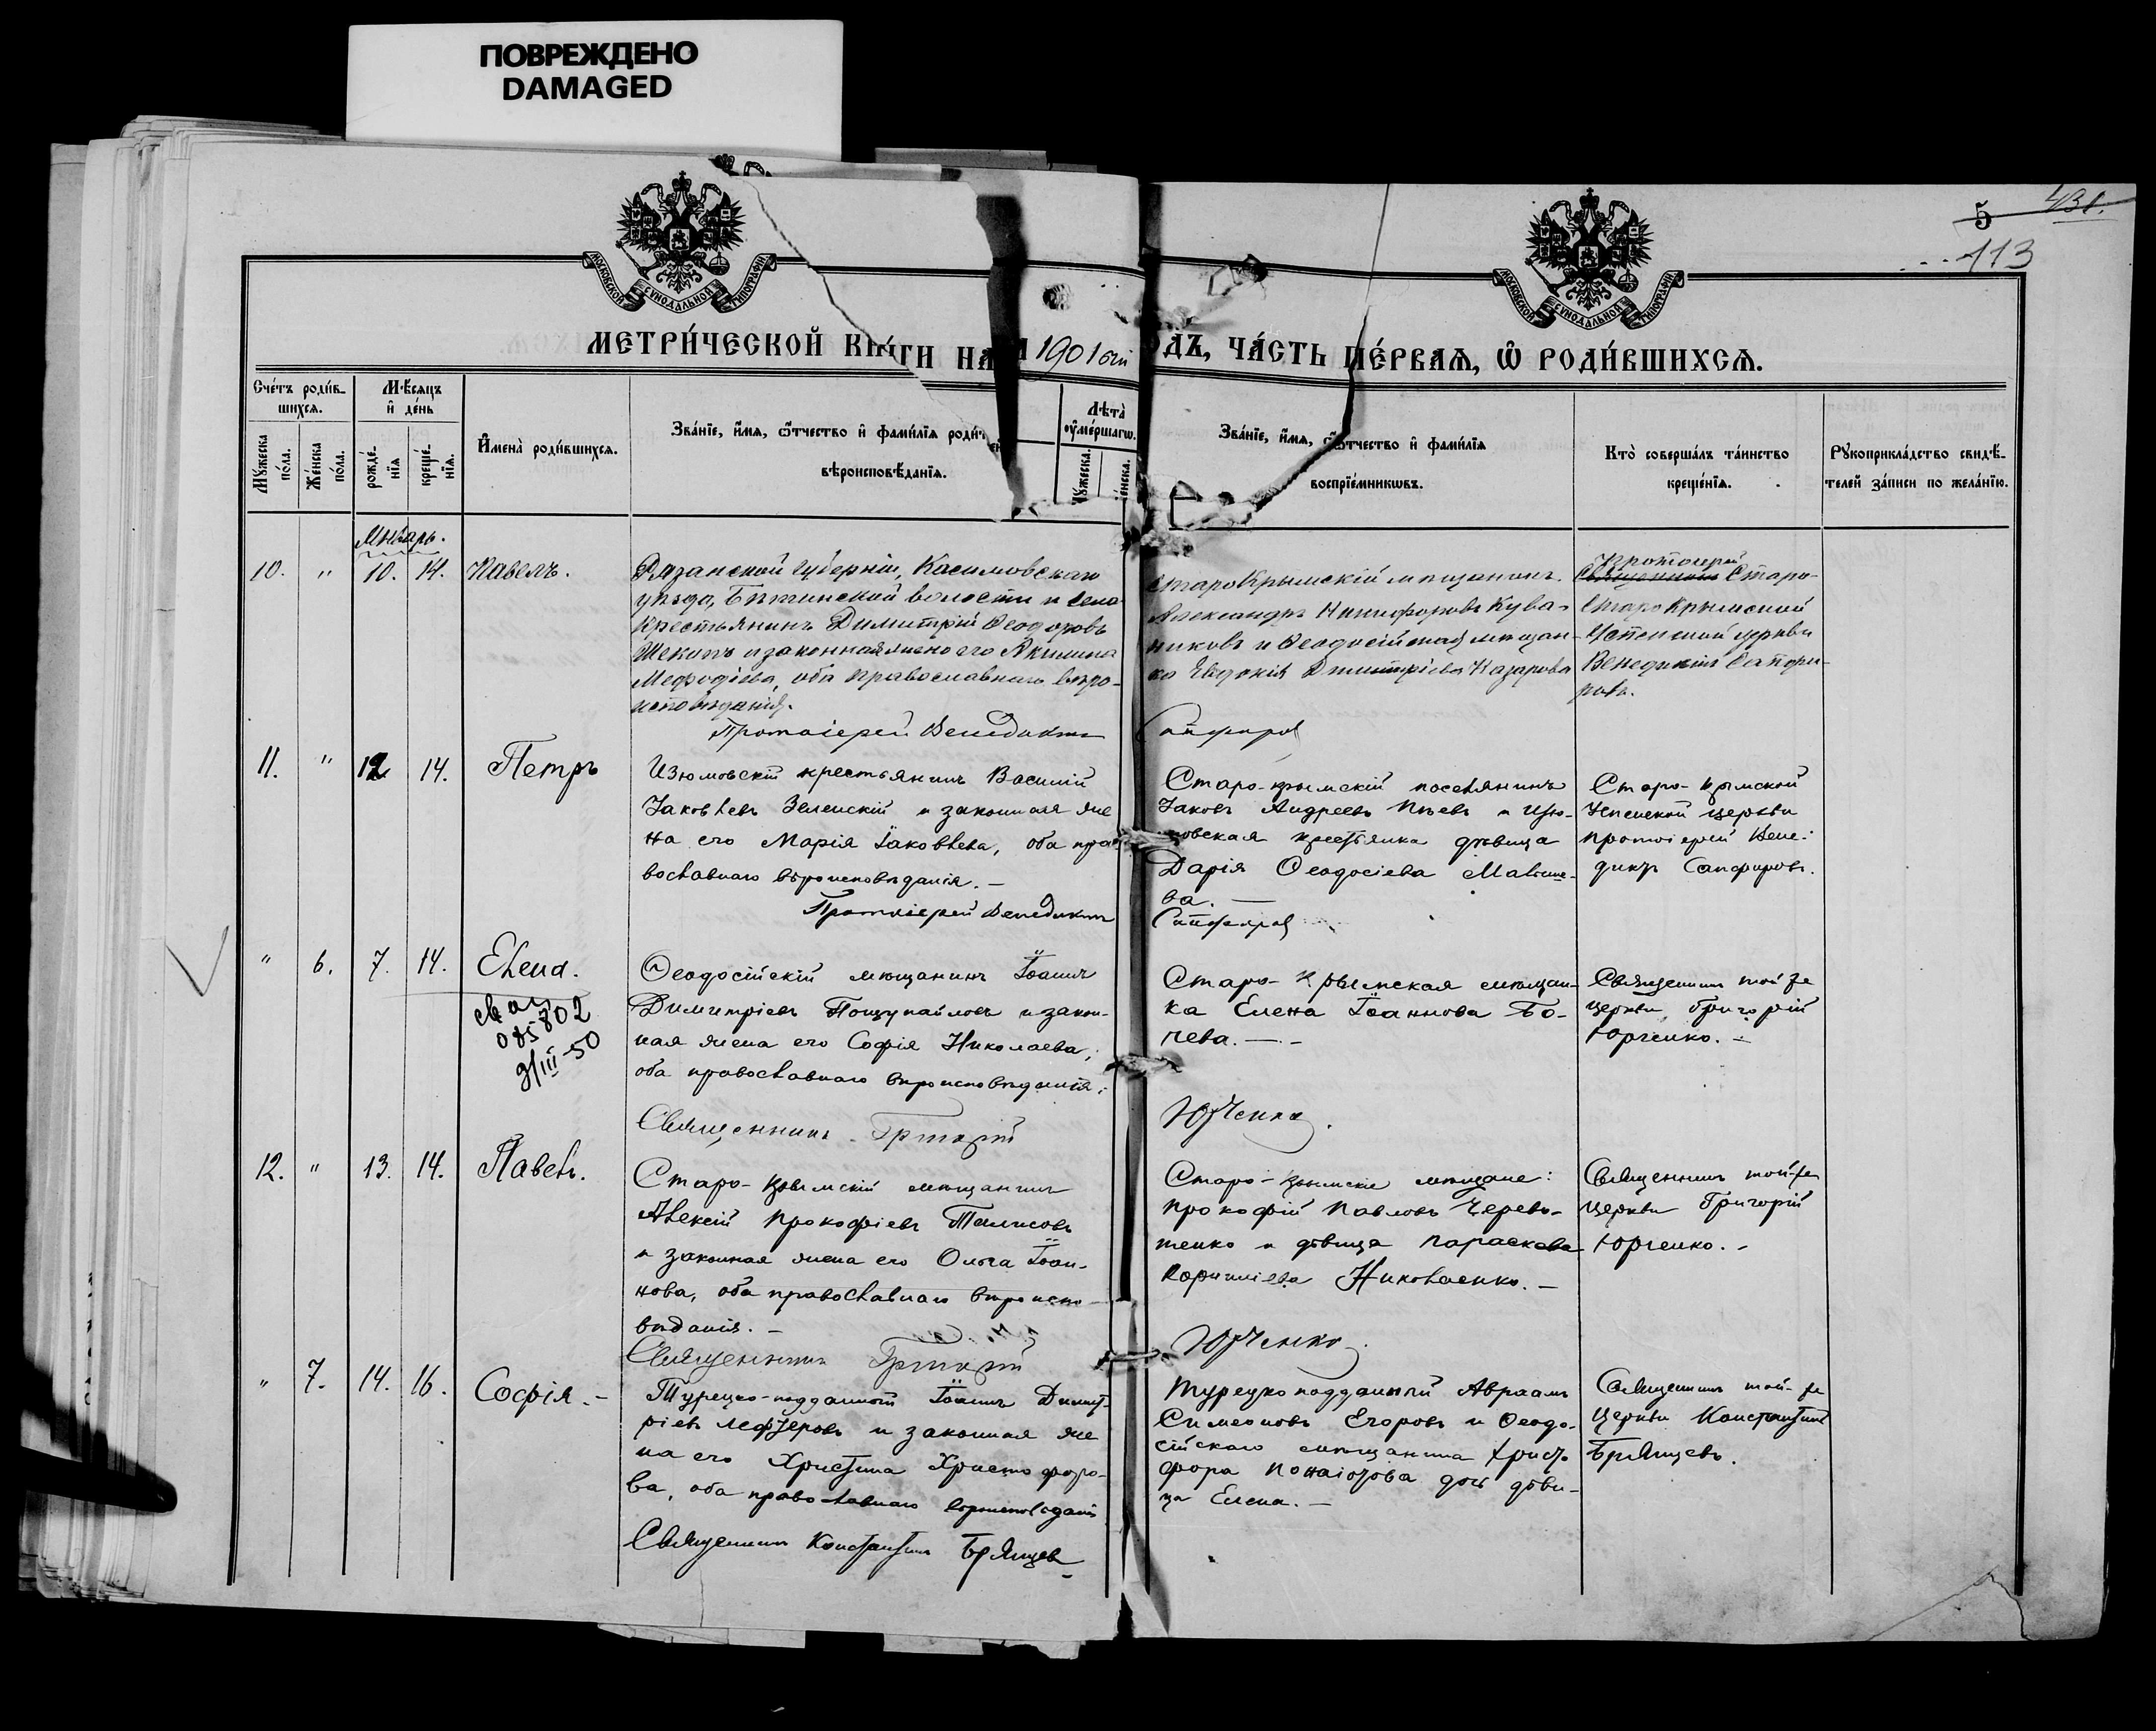 ПОВРЕЖДЕНО
DAMAGED
5 431.
113
МОСКОВСКОЙ СУНОДАЛЬНОЙ ТИПОГРАФІИ
МОСКОВСКОЙ СУНОДАЛЬНОЙ ТИПОГРАФІИ
МЕТРИ́ЧЕСКОЙ КНИ́ГИ НА 1901 ый ОДЪ, ЧА́СТЬ ПЕ́РВАЯ, Ѿ РОДИ́ВШИХСЯ.
Сче́тъ роди́в-
шихся.
Мꙋжеска по́ла.
Же́нска по́ла.
Мѣ́сяцъ
и҆ де́нь
рожде́-
нїя
креще́-
нїя.
И҆мена̀ роди́вшихся.
Зва́нїе, и҆́мя, ѻ҆́тчество и҆ фами́лїя роди
вѣроисповѣ́данїя.
Лѣта̀
ᲂу҆ме́ршагѡ.
Мꙋ́жеска.
Же́нска.
Зва́нїе, и҆́мя, ѻ҆́тчество и҆ фами́лїя
воспрїе́мникѡвъ.
Кто̀ соверша́лъ та́инство
креще́нїя.
Рꙋкоприкла́дство свидѣ́-
телей за́писи по жела́нїю.
Январь.
10. " 10. 14. Павелъ.
Рязанской губерніи, Касимовскаго
уѣзда, волости и села
Крестьянинъ Димитрій Ѳеодоровъ
и законная жена его Акилина
Меѳодіева, оба православнаго вѣро-
исповѣданія.
Протоіерей Венедиктъ Сапфировъ
Старокрымскій мѣщанинъ
Александръ Никифоровъ Кува-
никовъ и Ѳеодосійская мѣщан-
ка Евдокія Димитріева Казарова
Протоіерей
Священникъ Старо-
Старо Крымской
Успенской церкви
Венедиктъ Сапфи-
ровъ.
11. " 12 14. Петръ
Изюмовскій крестьянинъ Василій
Іаковлевъ Зеленскій и законная же
на его Марія Іаковлева, оба пра
вославнаго вѣроисповѣданія. —
Протоіерей Венедиктъ Сапфировъ
Старо-крымскій поселянинъ
Іаковъ Андреевъ и Изю-
мовская крестьянка дѣвица
Дарія Ѳеодосіева
ва. —
Старо-крымской
Успенской церкви
протоіерей Вене-
диктъ Сапфировъ.
" 6. 7. 14. Елена.
085802
9/III-50
Ѳеодосійскій мѣщанинъ Іоаннъ
Димитріевъ Пощупайловъ и закон-
ная жена его Софія Николаева,
оба православнаго вѣроисповѣданія.
Священникъ Григорій Юрченко.
Старо-Крымская мѣщан-
ка Елена Іоаннова Бо-
чева. —
Священникъ той же
церкви Григорій
Юрченко. —
12. " 13. 14. Павелъ.
Старо-крымскій мѣщанинъ
Алексій Прокофіевъ
и законная жена его Ольга Іоан-
нова, оба православнаго вѣроиспо-
вѣданія. —
Священникъ Григорій Юрченко.
Старо-крымскіе мѣщане:
Прокофій Павловъ Черево-
тенко и дѣвица Параскева
Корниліева Николаенко. —
Священникъ той-же
церкви Григорій
Юрченко. —
" 7. 14. 16. Софія. —
Турецко-подданный Іоаннъ Димит-
ріевъ и законная же
на его Христина Христофоро-
ва, оба православнаго вѣроисповѣданія
Священникъ Константинъ Брянцевъ
Турецкоподданный Авраамъ
Симеоновъ Егоровъ и Ѳеодо-
сійскаго мѣщанина Христо
фора дочь дѣви-
ца Елена. —
Священникъ той-же
церкви Константинъ
Брянцевъ.